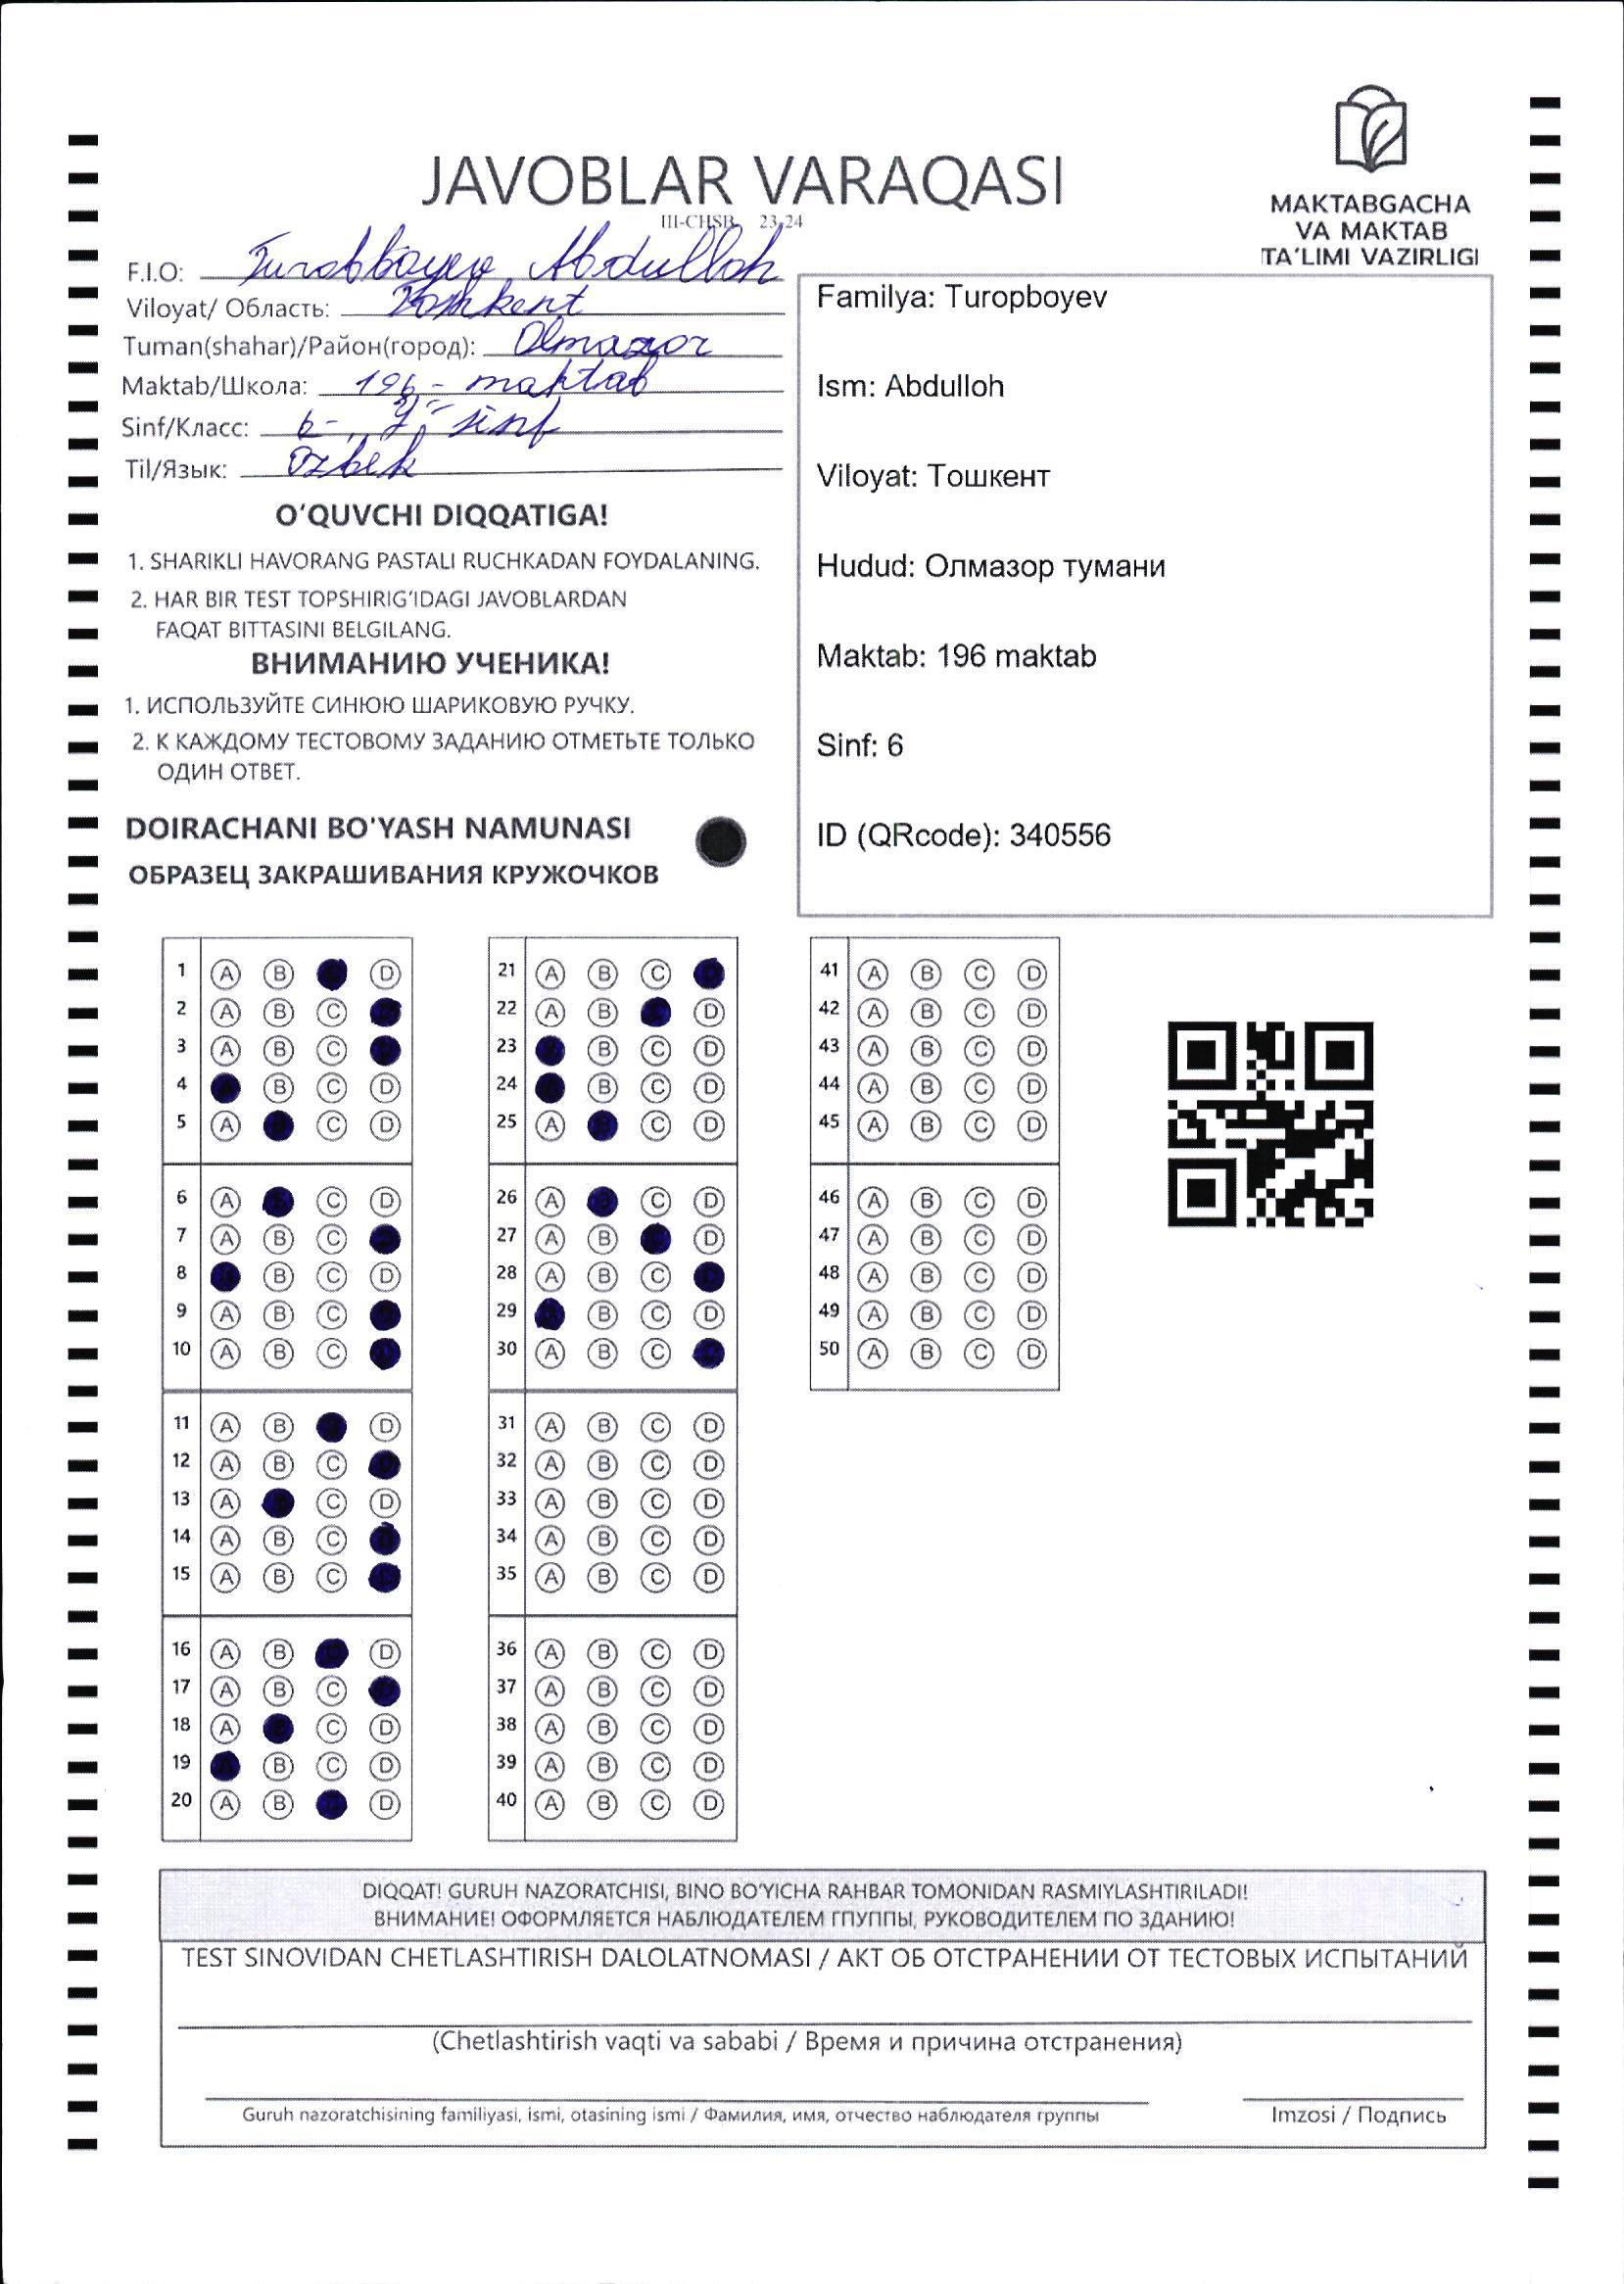 JAVOBLAR VARAQASI
III-CHSB 23-24
MAKTABGACHA
VA MAKTAB
TA'LIMI VAZIRLIGI
F.I.O: Turobboyev Abdulloh
Viloyat/ Область: Toshkent
Tuman(shahar)/Район(город): Olmazor
Maktab/Школа: 196 - maktab
Sinf/Класс: 6- sinf
Til/Язык: Ozbek
Familya: Turopboyev
Ism: Abdulloh
Viloyat: Тошкент
Hudud: Олмазор тумани
Maktab: 196 maktab
Sinf: 6
ID (QRcode): 340556
O'QUVCHI DIQQATIGA!
1. SHARIKLI HAVORANG PASTALI RUCHKADAN FOYDALANING.
2. HAR BIR TEST TOPSHIRIG'IDAGI JAVOBLARDAN
FAQAT BITTASINI BELGILANG.
ВНИМАНИЮ УЧЕНИКА!
1. ИСПОЛЬЗУЙТЕ СИНЮЮ ШАРИКОВУЮ РУЧКУ.
2. К КАЖДОМУ ТЕСТОВОМУ ЗАДАНИЮ ОТМЕТЬТЕ ТОЛЬКО
ОДИН ОТВЕТ.
DOIRACHANI BO'YASH NAMUNASI
ОБРАЗЕЦ ЗАКРАШИВАНИЯ КРУЖОЧКОВ
1 A B D
2 A B C
3 A B C
4 B C D
5 A C D
6 A C D
7 A B C
8 B C D
9 A B C
10 A B C
11 A B D
12 A B C
13 A C D
14 A B C
15 A B C
16 A B D
17 A B C
18 A C D
19 B C D
20 A B D
21 A B C
22 A B D
23 B C D
24 B C D
25 A C D
26 A C D
27 A B D
28 A B C
29 B C D
30 A B C
31 A B C D
32 A B C D
33 A B C D
34 A B C D
35 A B C D
36 A B C D
37 A B C D
38 A B C D
39 A B C D
40 A B C D
41 A B C D
42 A B C D
43 A B C D
44 A B C D
45 A B C D
46 A B C D
47 A B C D
48 A B C D
49 A B C D
50 A B C D
DIQQAT! GURUH NAZORATCHISI, BINO BO'YICHA RAHBAR TOMONIDAN RASMIYLASHTIRILADI!
ВНИМАНИЕ! ОФОРМЛЯЕТСЯ НАБЛЮДАТЕЛЕМ ГПУППЫ, РУКОВОДИТЕЛЕМ ПО ЗДАНИЮ!
TEST SINOVIDAN CHETLASHTIRISH DALOLATNOMASI / АКТ ОБ ОТСТРАНЕНИИ ОТ ТЕСТОВЫХ ИСПЫТАНИЙ
(Chetlashtirish vaqti va sababi / Время и причина отстранения)
Guruh nazoratchisining familiyasi, ismi, otasining ismi / Фамилия, имя, отчество наблюдателя группы
Imzosi / Подпись